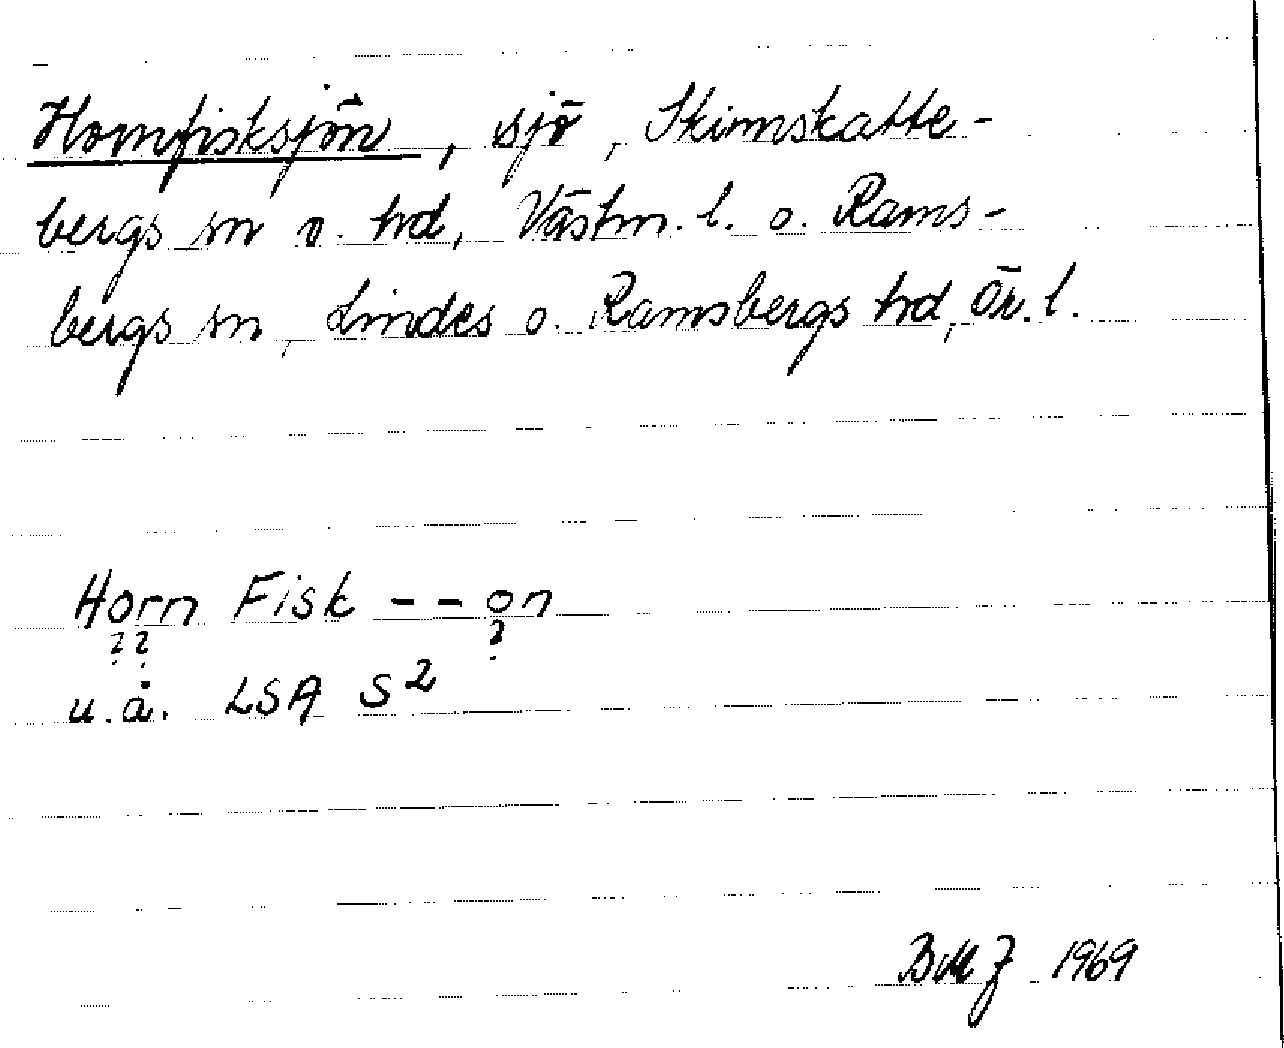 Hornfisksjön, sjö, Skinnskatte-
bergs sn o. hd, Västm. l. o. Rams-
bergs sn, Lindes o. Ramsbergs hd, Ör. l.
Horn Fisk - - on
? ? ?
u. å. LSA S²
BMJ 1969